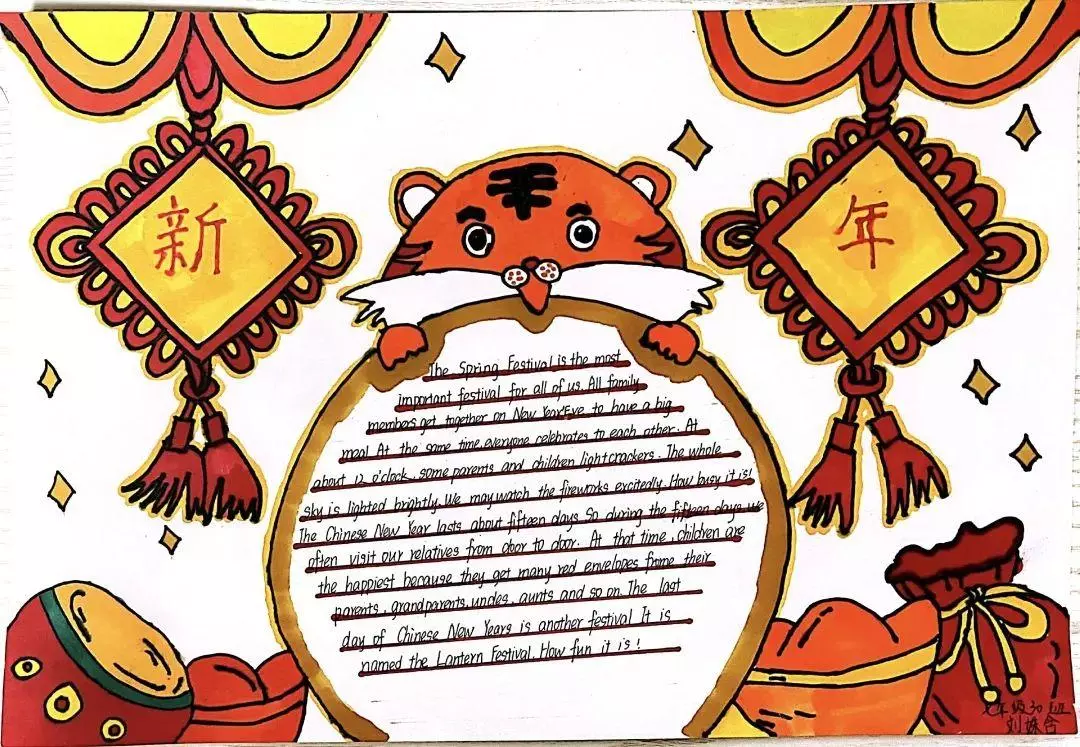 新
年
The Spring Festival is the most
important festival for all of us. All family
members get together on New Year'Eve to have a big
meal At the same time,everyone celebrates to each other. At
about 12 o'clock, some parents and children light crackers. The whole
sky is lighted brightly. We may watch the fireworks excitedly. How busy it is!
The Chinese New Year lasts about fifteen days. So during the fifteen days we
often visit our relatives from door to door. At that time, children are
the happiest because they get many red envelopes frome their
parents, grandparents, uncles, aunts and so on. The last
day of Chinese New Years is another festival It is
named the Lantern Festival. How fun it is!
七年级30班